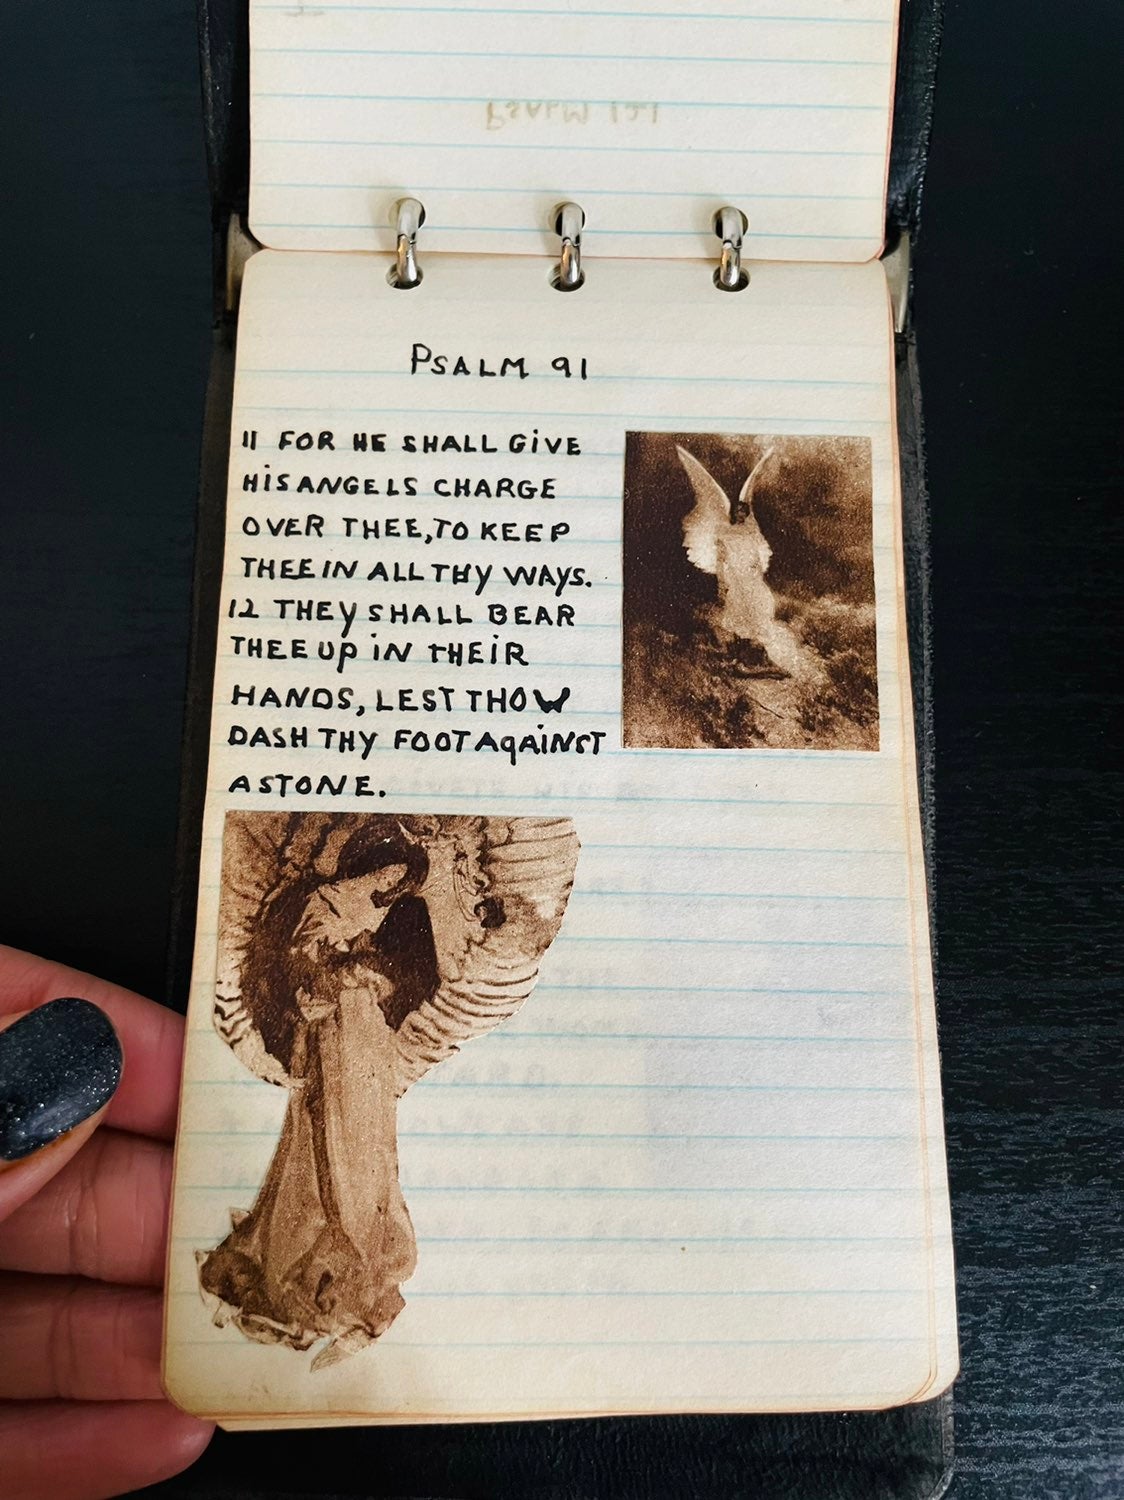 PSALM 121
PSALM 91
11 FOR HE SHALL GiVE
HiS ANGELS CHARGE
OVER THEE, TO KEEP
THEE IN ALL THY WAYS.
12 THEY SHALL BEAR
THEE UP iN THEiR
HANDS, LEST THOW
DASH THY FOOT AgAiNST
A STONE.